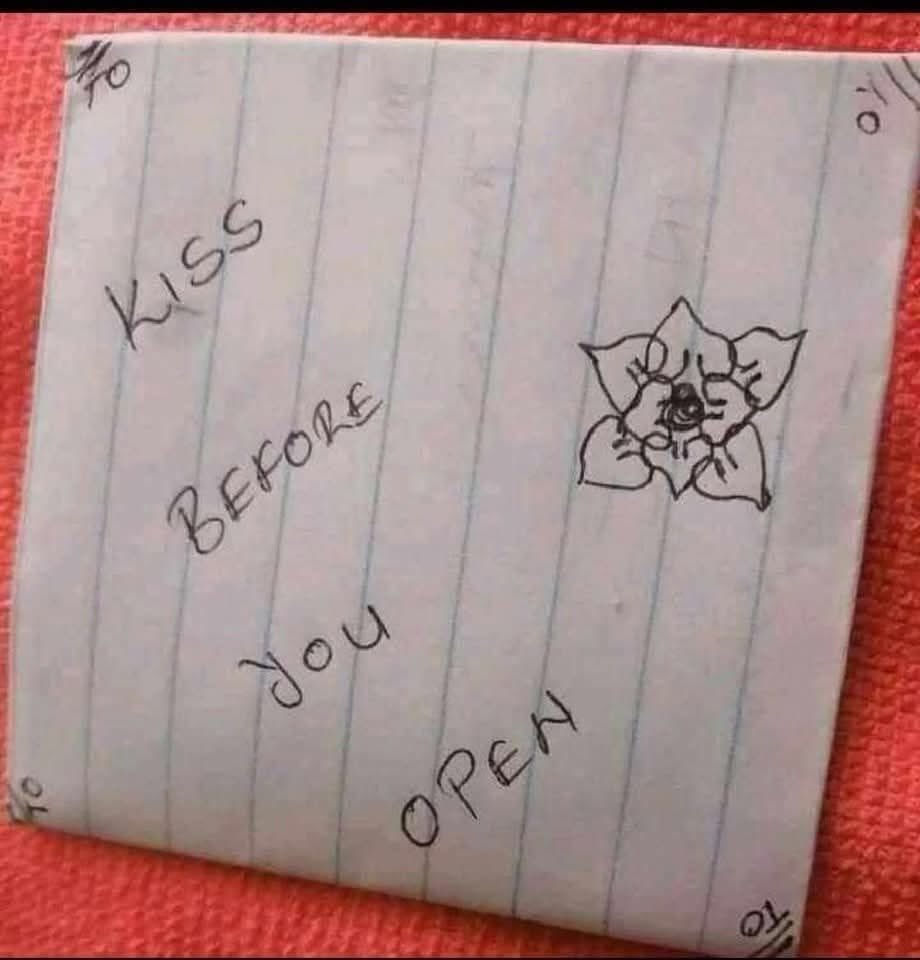 TO
TO
KISS
BEFORE
YOU
OPEN
TO
TO